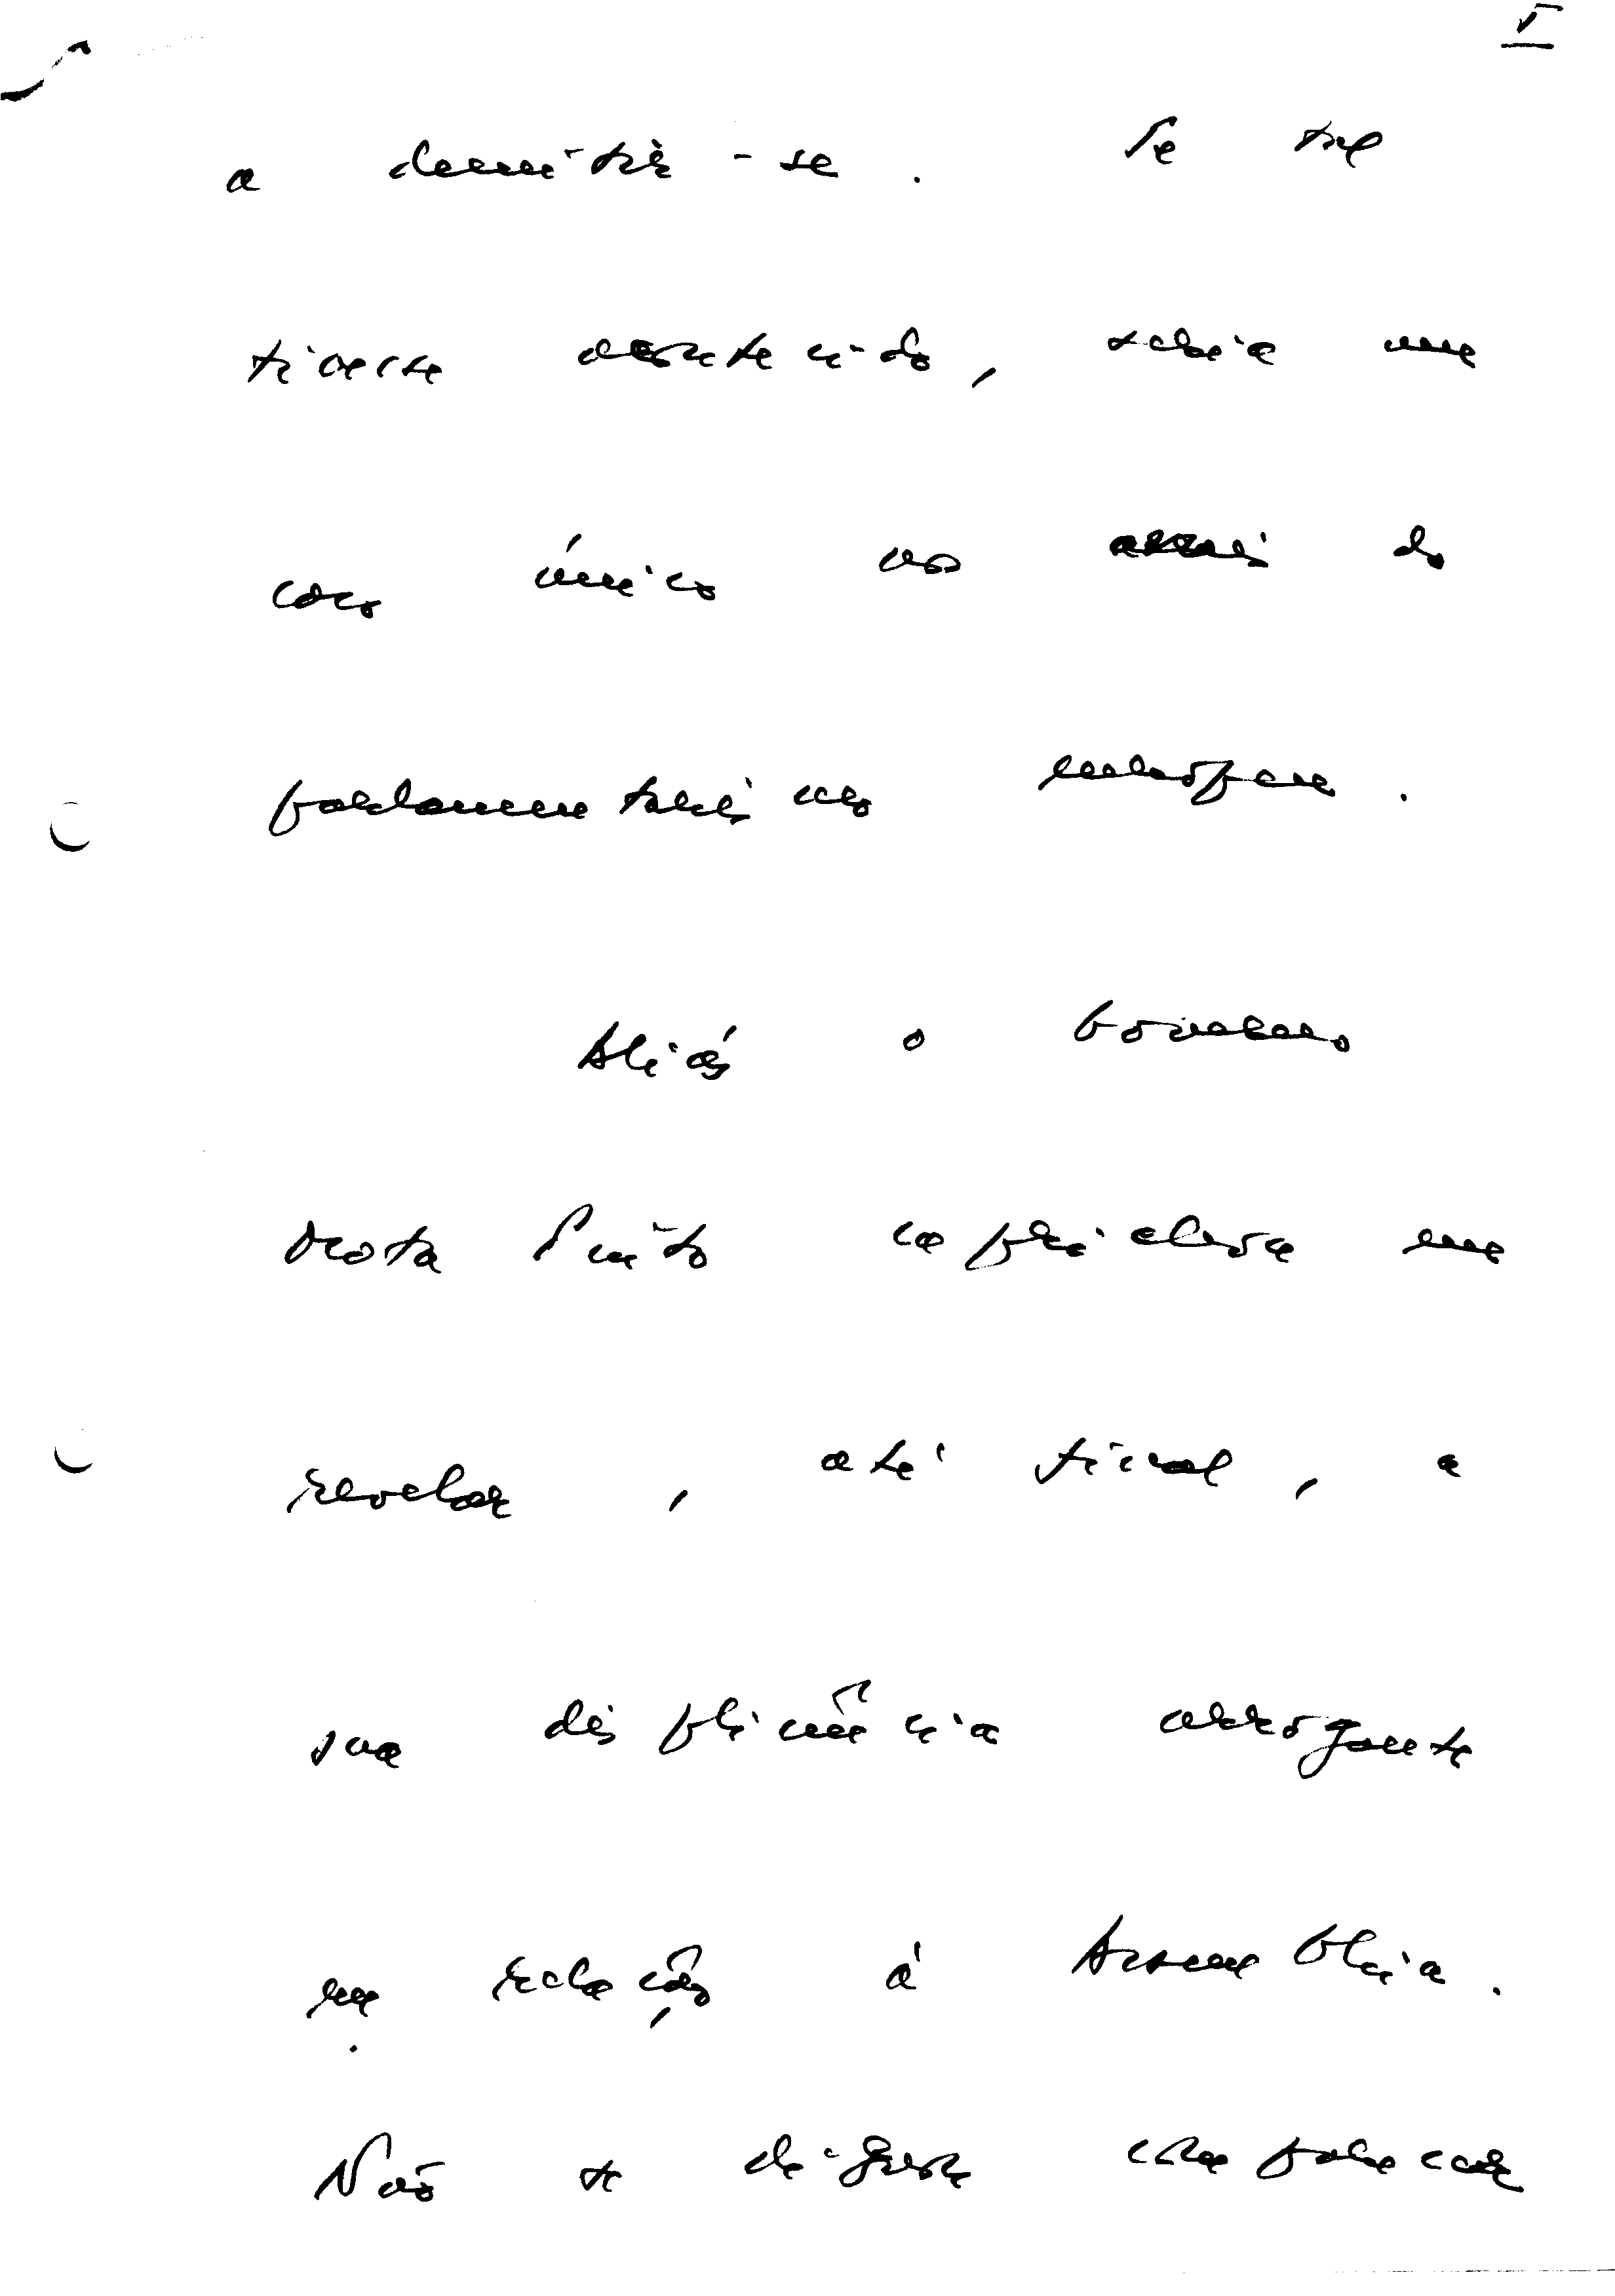 5
a demitir-se. Se tal
tivesse acontecido, seria um
caso único nos anais do
parlamentarismo europeu.
Aliás o Governo
Mota Pinto caprichou em
revelar, até final, a
sua displicência arrogante
em relação à Assembleia.
Não se dignou comparecer